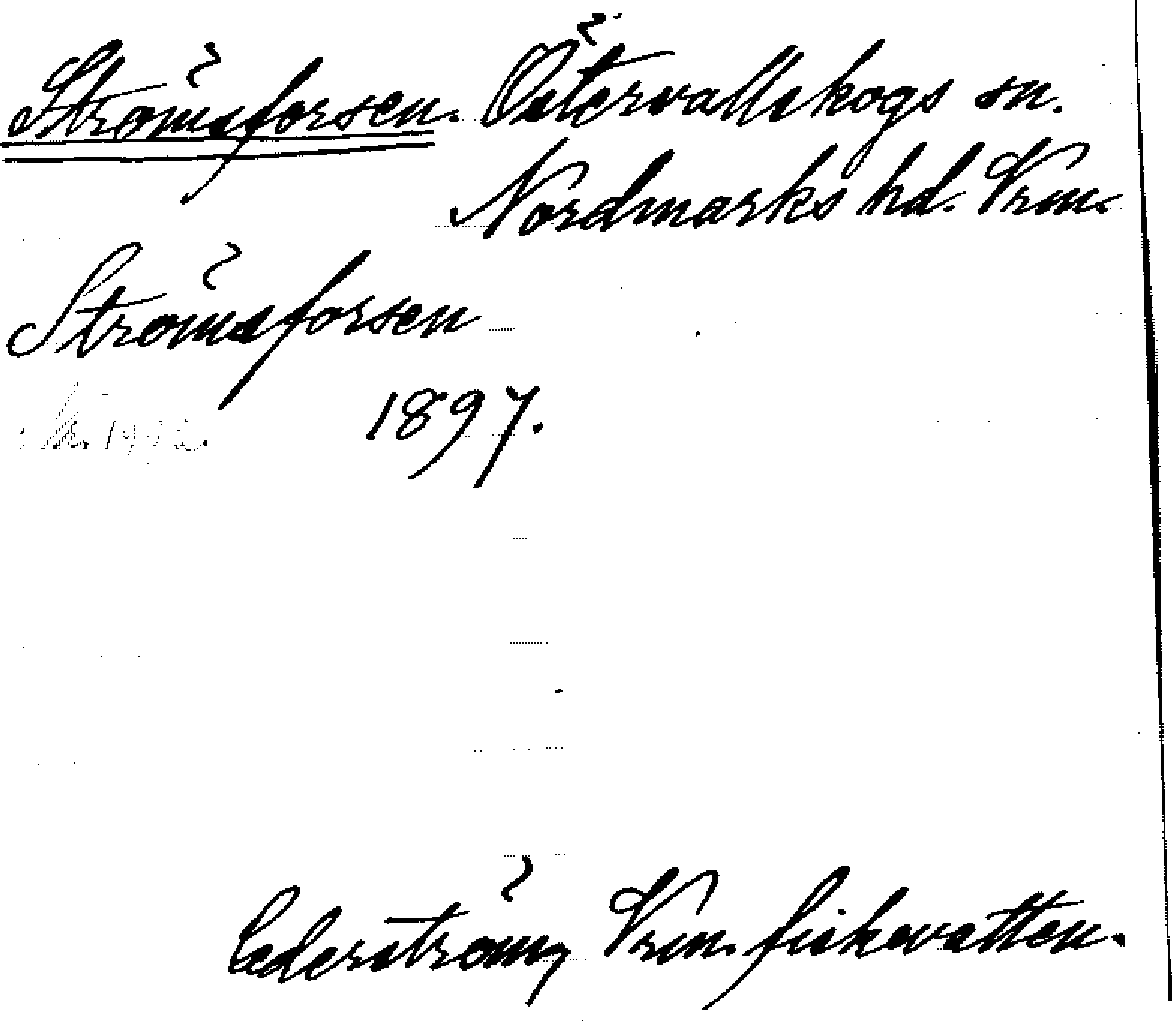 Strömsforsen. Östervallskogs sn.
Nordmarks hd. Vrm.
Strömsforsen
1897.
Cederström, Vrm. fiskevatten.